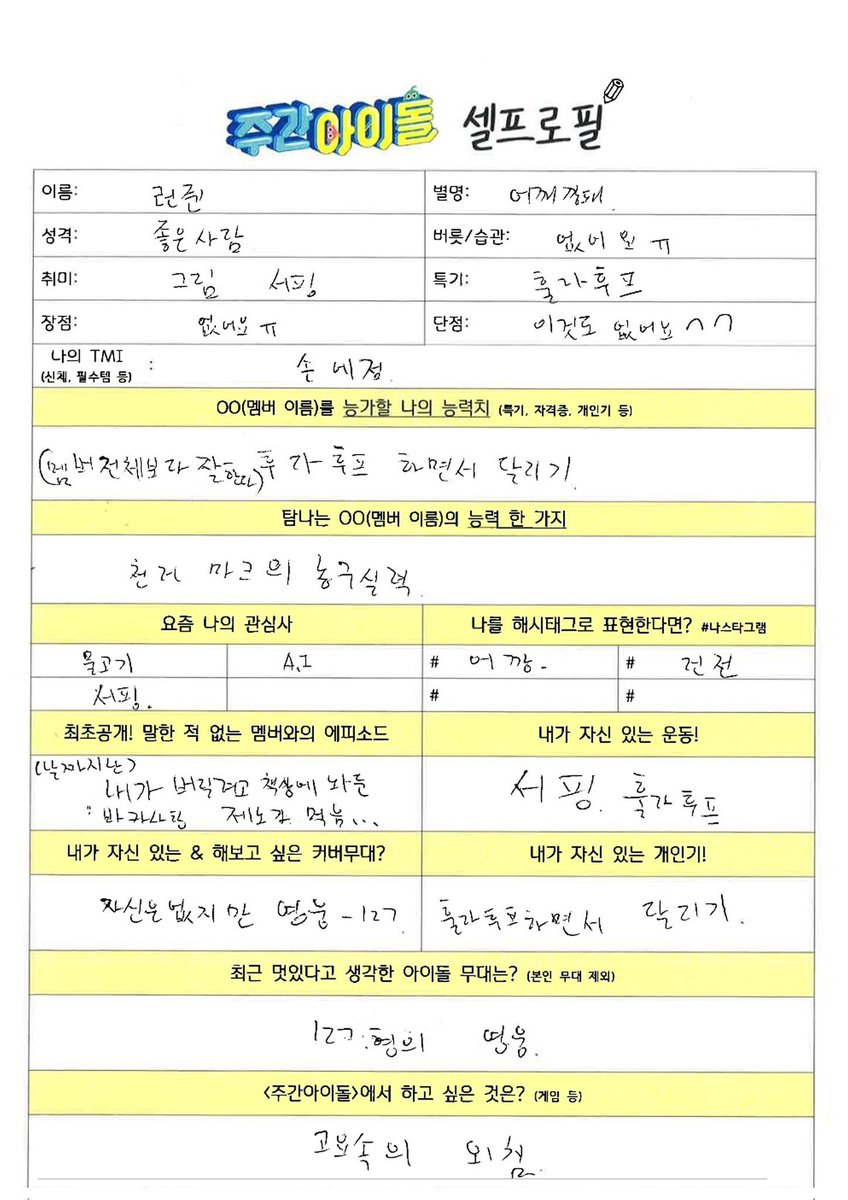 주간아이돌 셀프로필
이름: 런쥔 별명: 어깨깡패
성격: 좋은사람 버릇/습관: 없어요ㅠ
취미: 그림 서핑 특기: 훌라후프
장점: 없어요ㅠ 단점: 이것도 없어요^^
나의 TMI : 손에점.
(신체, 필수템 등)
OO(멤버 이름)를 능가할 나의 능력치 (특기, 자격증, 개인기 등)
(멤버전체보다 잘한다) 후라후프 하면서 달리기
탐나는 OO(멤버 이름)의 능력 한 가지
천러 마크의 농구실력.
요즘 나의 관심사 나를 해시태그로 표현한다면? #나스타그램
물고기 A.I # 어깡. # 런전
서핑. # #
최초공개! 말한 적 없는 멤버와의 에피소드 내가 자신 있는 운동!
(날짜지난)
내가 버릴려고 책상에 놔둔 서핑. 훌라후프
제노가 먹음...
내가 자신 있는 & 해보고 싶은 커버무대? 내가 자신 있는 개인기!
자신은없지만 영웅-127. 훌라후프하면서 달리기.
최근 멋있다고 생각한 아이돌 무대는? (본인 무대 제외)
127.형의 영웅.
<주간아이돌>에서 하고 싶은 것은? (게임 등)
고요속의 외침.